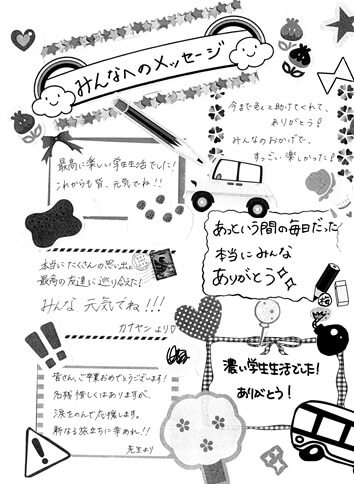 みんなへのメッセージ
今まで色々と助けてくれて、
ありがとう!
みんなのおかげで、
すっごい楽しかった!
最高に楽しい学生生活でした!
これからも皆、元気でね!!
あっという間の毎日だった!
本当にみんな
ありがとう
本当にたくさんの思い出。
最高の友達に巡り合えた!
みんな元気でね!!!
カナヤンより♡
濃い学生生活でした!
ありがとう!
皆さん、ご卒業おめでとうございます!
名残惜しくはありますが、
涙をのんで応援します。
新なる旅立ちに幸あれ!!
先生より